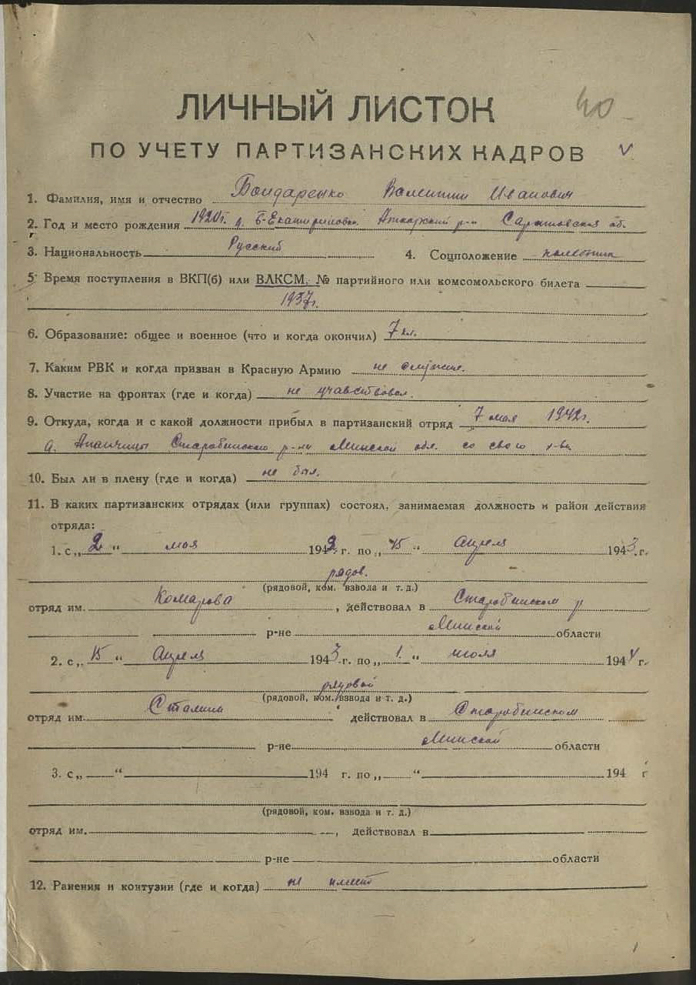 40
ЛИЧНЫЙ ЛИСТОК
ПО УЧЕТУ ПАРТИЗАНСКИХ КАДРОВ
1. Фамилия, имя и отчество Бондаренко Валентин Иванович
2. Год и место рождения 1920г. д. Б-Екатериновка Аткарский р-н Саратовская об.
3. Национальность Русский 4. Соцположение
5. Время поступления в ВКП(б) или ВЛКСМ. № партийного или комсомольского билета
1937г.
6. Образование: общее и военное (что и когда окончил) 7 кл.
7. Каким РВК и когда призван в Красную Армию не служил.
8. Участие на фронтах (где и когда) не учавствовал.
9. Откуда, когда и с какой должности прибыл в партизанский отряд 7 мая 1942г.
д. Старобинского р-на Минской обл. со своего х-ва
10. Был ли в плену (где и когда) не был.
11. В каких партизанских отрядах (или группах) состоял, занимаемая должность и район действия
отряда:
1. с „2“ мая 1942 г. по „15“ Апреля 1943 г.
рядов.
(рядовой, ком. взвода и т. д.)
отряд им. Комарова, действовал в Старобинском р
р-не Минской области
2. с „15“ Апреля 1943 г. по „1“ июля 1944 г.
рядовой
(рядовой, ком. взвода и т. д.)
отряд им. Сталина действовал в Старобинском
р-не Минской области
3. с „ “ 194 г. по „ “ 194 г
(рядовой, ком. взвода и т. д.)
отряд им. , действовал в
р-не области
12. Ранения и контузии (где и когда) не имеет